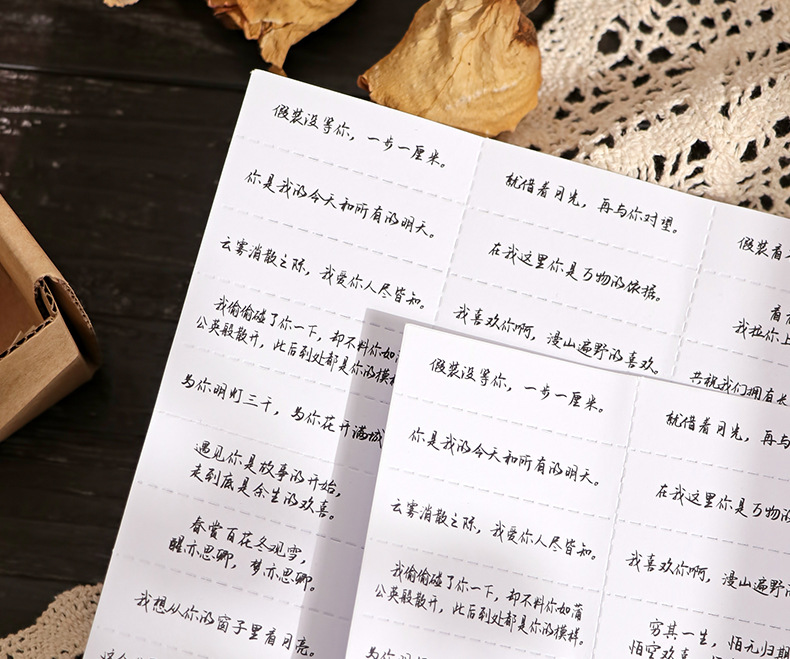 假装没等你，一步一厘米。
你是我的今天和所有的明天。
云雾消散之际，我爱你人尽皆知。
我偷偷碰了你一下，却不料你如
公英般散开，此后到处都是你的模样
为你明灯三千，为你花开满城
遇见你是故事的开始，
走到底是余生的欢喜。
春赏百花冬观雪，
醒亦思卿，梦亦思卿。
我想从你的窗子里看月亮。
就借着月光，再与你对望。
在我这里你是万物的依据。
我喜欢你啊，漫山遍野的喜欢。
假装看
我拉你上
共祝我们拥有长
假装没等你，一步一厘米。
你是我的今天和所有的明天。
云雾消散之际，我爱你人尽皆知。
我偷偷碰了你一下，却不料你如蒲
公英般散开，此后到处都是你的模样。
为你明
就借着月光，再与
在我这里你是万物的
我喜欢你啊，漫山遍野的
穷其一生，怕无归期
怕空欢喜